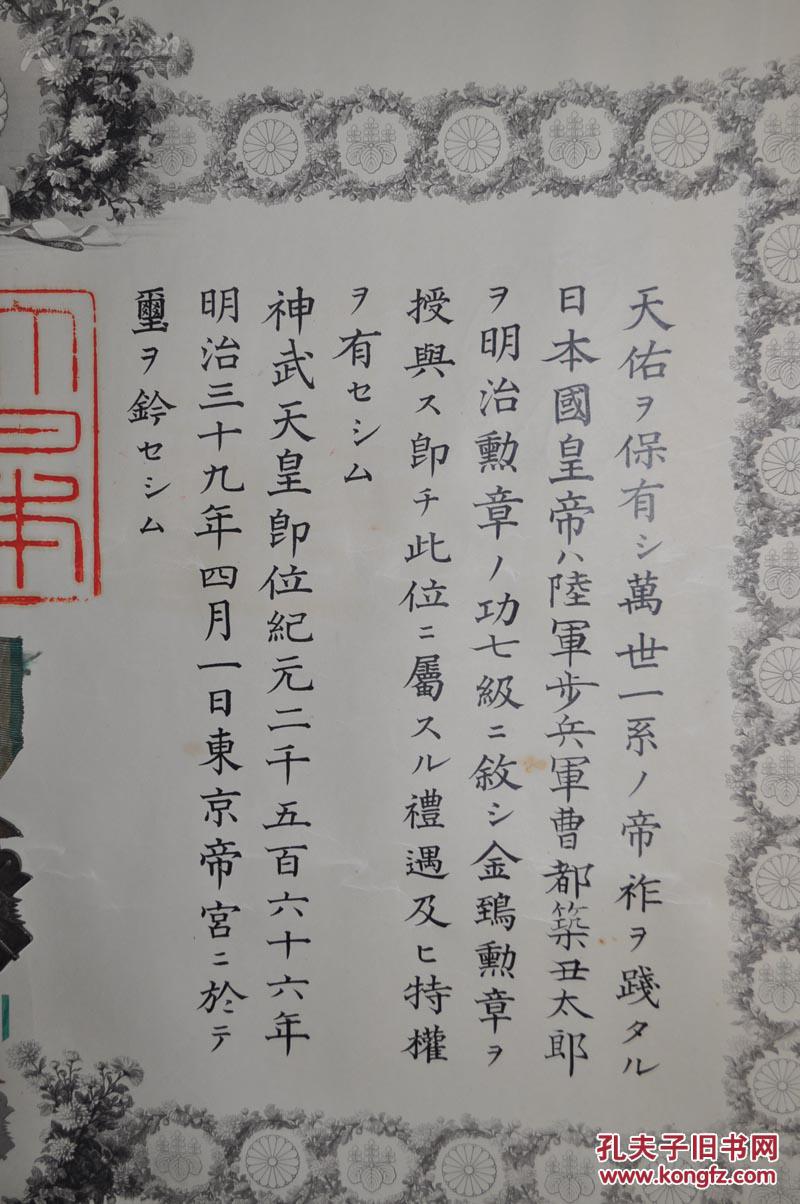 天佑ヲ保有シ萬世一系ノ帝祚ヲ踐タル
日本國皇帝ハ陸軍步兵軍曹都築丑太郎
ヲ明治勲章ノ功七級ニ敘シ金鵄勲章ヲ
授與ス卽チ此位ニ屬スル禮遇及ヒ特權
ヲ有セシム
神武天皇卽位紀元二千五百六十六年
明治三十九年四月一日東京帝宮ニ於テ
璽ヲ鈐セシム
孔夫子旧书网
www.kongfz.com